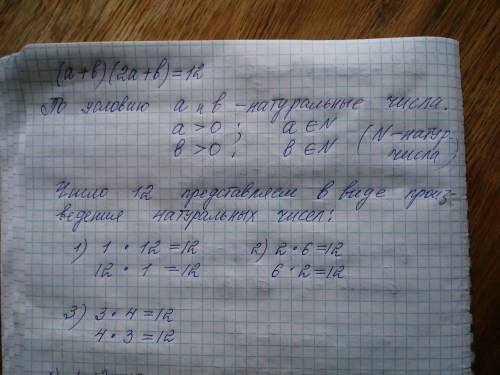 (a+в)(2a+в)=12
По условию a и в - натуральные числа.
a>0; a∈N (N-натур.
в>0; в∈N числа)
Число 12 представляем в виде произ-
ведения натуральных чисел:
1) 1·12=12 2) 2·6=12
12·1=12 6·2=12
3) 3·4=12
4·3=12